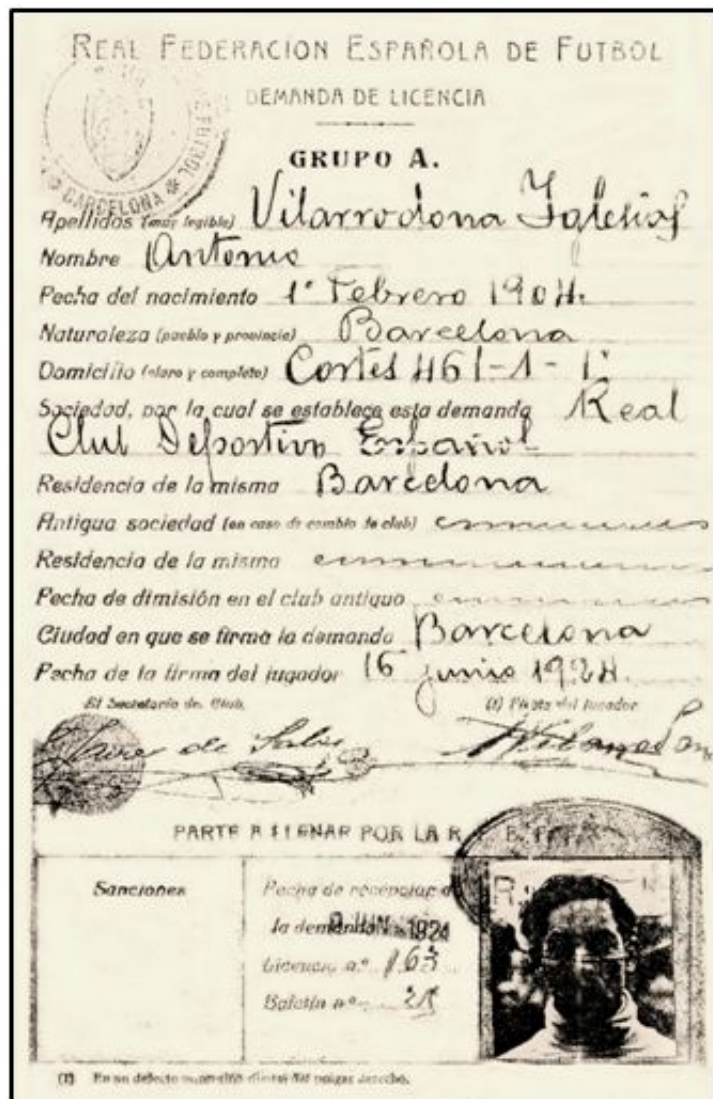 REAL FEDERACION ESPAÑOLA DE FUTBOL
DEMANDA DE LICENCIA
GRUPO A.
FUTBOL
BARCELONA
Apellidos (muy legible) Vilarrodona Iglesias
Nombre Antonio
Fecha del nacimiento 1º Febrero 1904.
Naturaleza (pueblo y provincia) Barcelona
Domicilio (claro y completo) Cortés 461-1-1ª
Sociedad, por la cual se establece esta demanda Real
Club Deportivo Español
Residencia de la misma Barcelona
Antigua sociedad (en caso de cambio de club)
Residencia de la misma
Fecha de dimisión en el club antiguo
Ciudad en que se firma la demanda Barcelona
Fecha de la firma del jugador 16 junio 1924.
El Secretario del Club,
(1) Firma del jugador
PARTE A LLENAR POR LA R.
Sanciones
Fecha de recepción de
la demanda JUN 1924
Licencia n.º 163
Boletín n.º 25
(1) En su defecto impresión digital del pulgar derecho.